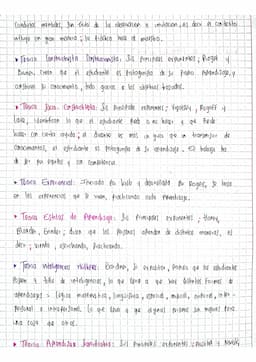 conductas mentales, son fruto de la observación e imitación, es decir el contexto
influye en gran manera; la didáctica hace el maestro.
▸ Teoría Constructivista : Sus principales exponentes; Piaget y
Bruner, Creía que el estudiante es protagonista de su propio Aprendizaje, y
construye su conocimiento, todo gracias a los objetivos trazados.
▸ Teoría Socio-Constructivista: Sus principales exponentes; Vygotsky, Rogoff y
Lave, identifican lo que el estudiante puede o no hacer y que puede
hacer con cierta ayuda; el docente es más un guía que un transmisor de
conocimientos, el estudiante es protagonista de su aprendizaje. El trabajo ha
de ser por partes y con consistencia.
▸ Teoría Experiencial: Iniciada por Kolb y desarrollada por Rogers, se basa
en las experiencias que se viven, practicando cada Aprendizaje.
▸ Teoría Estilos de Aprendizaje: Sus principales exponentes; Honey,
, Bandler, Grinder; dicen que las personas aprenden de distintas maneras, es
decir; viendo, escuchando, practicando.
▸ Teoría inteligencias múltiples: Gardner, su expositor, piensa que los estudiantes
poseen 7 tipos de inteligencias, lo que lleva a que haya distintas formas de
aprendizajes = lógica matemática, lingüística, espacial, musical, natural, inter-
personal e intrapersonal. Lo que lleva a que algunas personas sean mejores para
una cosa que otras.
▸ Teoría Aprendizaje Significativo: Sus principales exponentes: Ausubel y Novak,